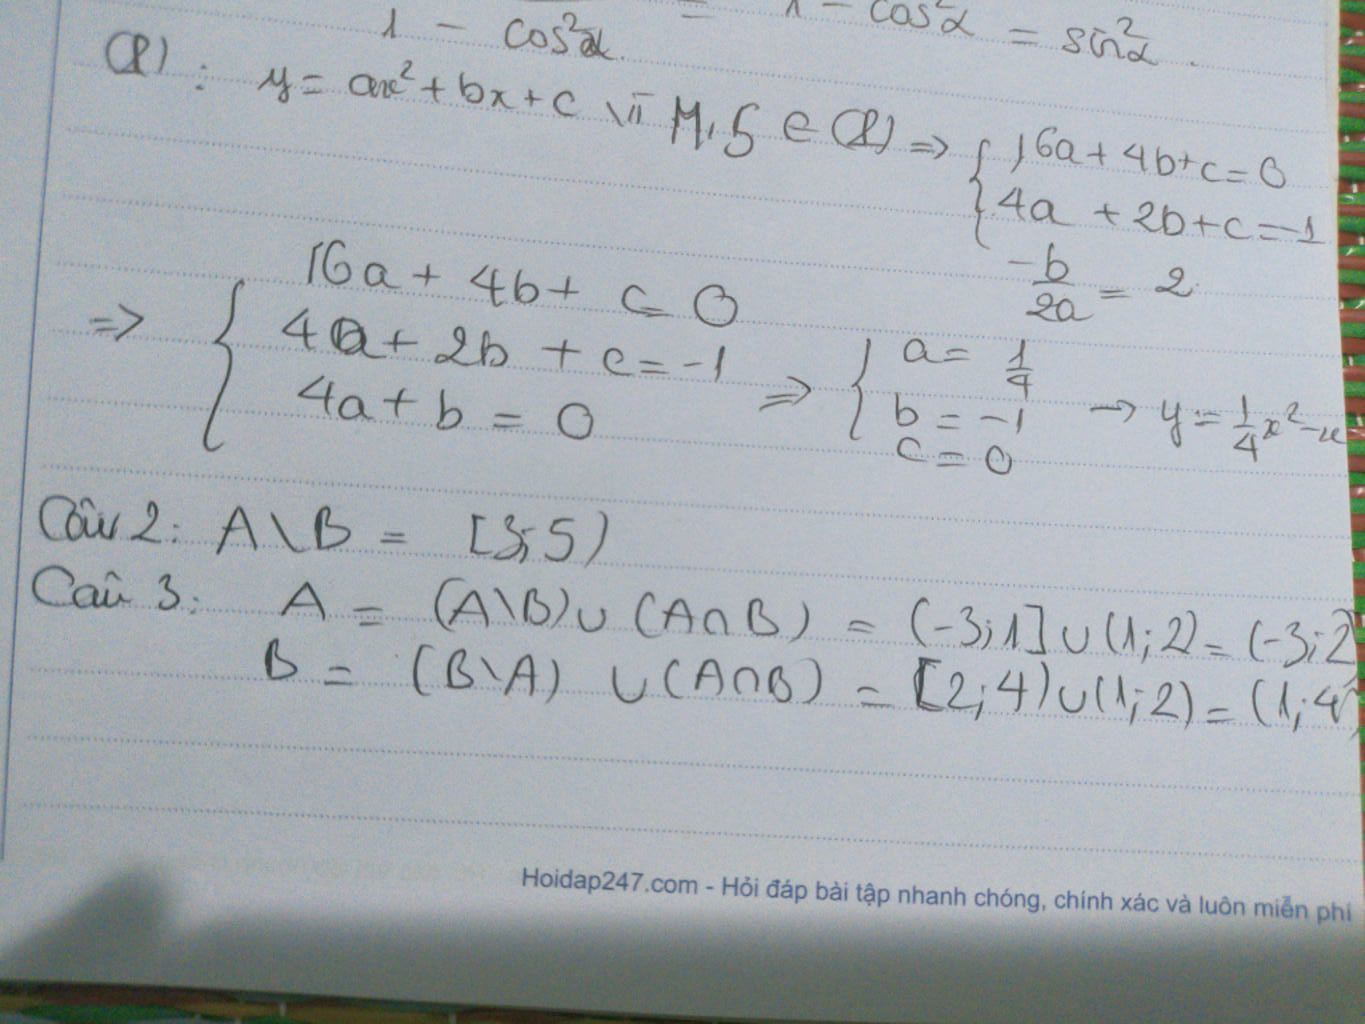 1 - cos²α = 1 - cos²α = sin²α.
(P): y = ax² + bx + c vì M, S ∈ (P) => { 16a + 4b + c = 0
4a + 2b + c = -1
-b/2a = 2
=> { 16a + 4b + c = 0
4a + 2b + c = -1
4a + b = 0
=> { a = 1/4
b = -1
c = 0
→ y = 1/4 x² - x
Câu 2: A\B = [3; 5)
Câu 3: A = (A\B) ∪ (A∩B) = (-3; 1] ∪ (1; 2) = (-3; 2)
B = (B\A) ∪ (A∩B) = [2; 4) ∪ (1; 2) = (1; 4)
Hoidap247.com - Hỏi đáp bài tập nhanh chóng, chính xác và luôn miễn phí